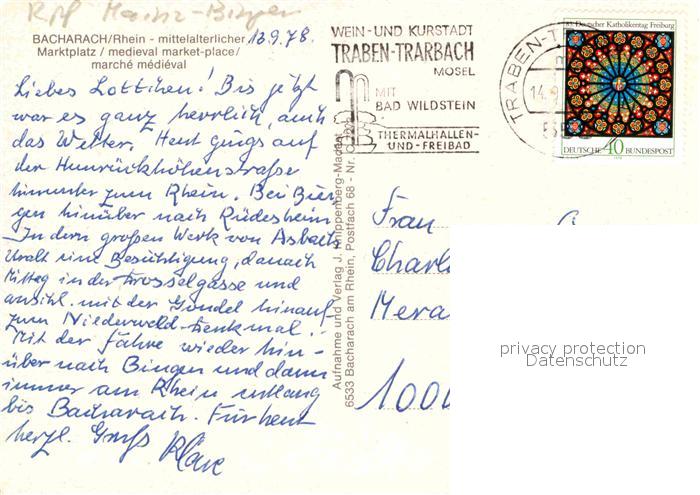 Rpf Mainz-Bingen
BACHARACH/Rhein - mittelalterlicher
Marktplatz / medieval market-place/
marché médiéval
13.9.78.
Liebes Lottchen! Bis jetzt
war es ganz herrlich, auch
das Wetter. Heut gings auf
der Hunsrückhöhenstraße
hinunter zum Rhein. Bei Bin-
gen hinüber nach Rüdesheim.
In dem großen Werk von Asbach
Uralt eine Besichtigung, danach
Mittag in der Drosselgasse und
anschl. mit der Gondel hinauf
zum Niederwald-Denkmal.
Mit der Fähre wieder hin-
über nach Bingen und dann
immer am Rhein entlang
bis Bacharach. Für heut
herzl. Gruß
WEIN-UND KURSTADT
TRABEN-TRARBACH
MOSEL
MIT
BAD WILDSTEIN
THERMALHALLEN-
UND-FREIBAD
TRABEN-T
14.9
85. Deutscher Katholikentag Freiburg
DEUTSCHE BUNDESPOST
40
Aufnahme und Verlag J. Knippenberg-Mades
6533 Bacharach am Rhein, Postfach 68 - Nr.
Frau
Charl
Mera
1000
privacy protection
Datenschutz